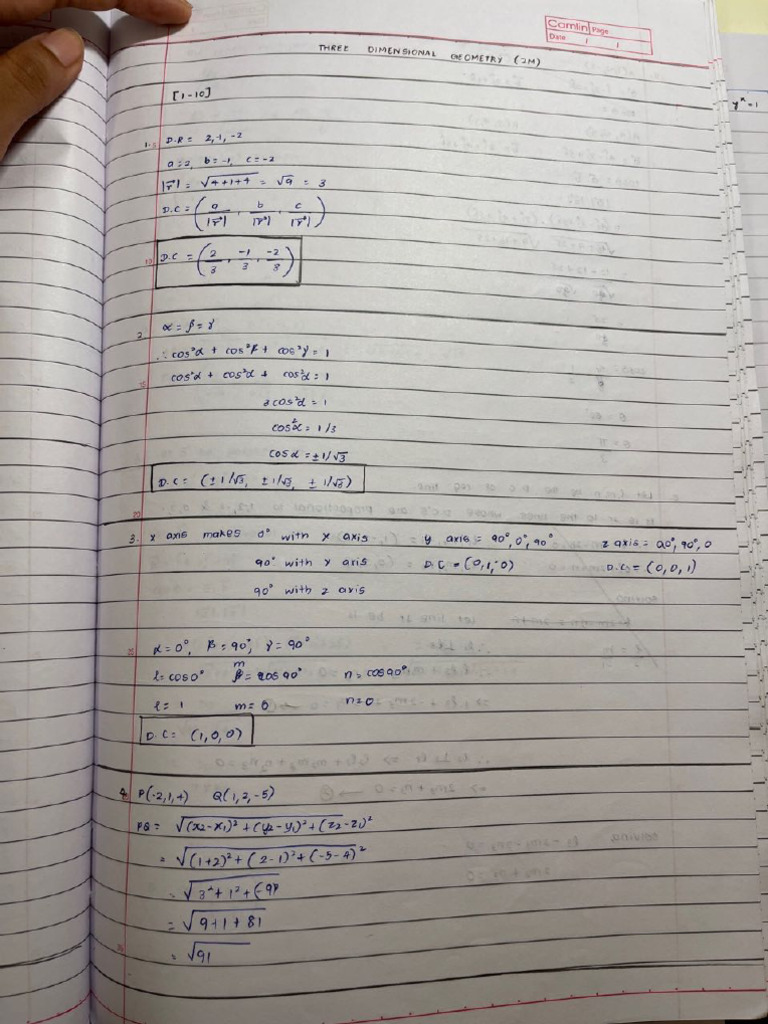 Camlin Page
Date / /
THREE DIMENSIONAL GEOMETRY (2M)
y^x = 1
[1-10]
1. D.R = 2, -1, -2
a = 2, b = -1, c = -2
|r⃗| = √(4+1+4) = √9 = 3
D.C = (a/|r⃗|, b/|r⃗|, c/|r⃗|)
D.C = (2/3, -1/3, -2/3)
2. α = β = γ
∴ cos²α + cos²β + cos²γ = 1
cos²α + cos²α + cos²α = 1
3cos²α = 1
cos²α = 1/3
cosα = ±1/√3
D.C = (±1/√3, ±1/√3, ±1/√3)
3. x axis makes 0° with x axis y axis = 90°, 0°, 90° z axis = 90°, 90°, 0
90° with y axis D.C = (0, 1, 0) D.C = (0, 0, 1)
90° with z axis
α = 0°, β = 90°, γ = 90°
l = cos0° m = cos90° n = cos90°
l = 1 m = 0 n = 0
D.C = (1, 0, 0)
4. P(-2, 1, 4) Q(1, 2, -5)
PQ = √(x2-x1)² + (y2-y1)² + (z2-z1)²
= √(1+2)² + (2-1)² + (-5-4)²
= √3² + 1² + (-9)²
= √9+1+81
= √91